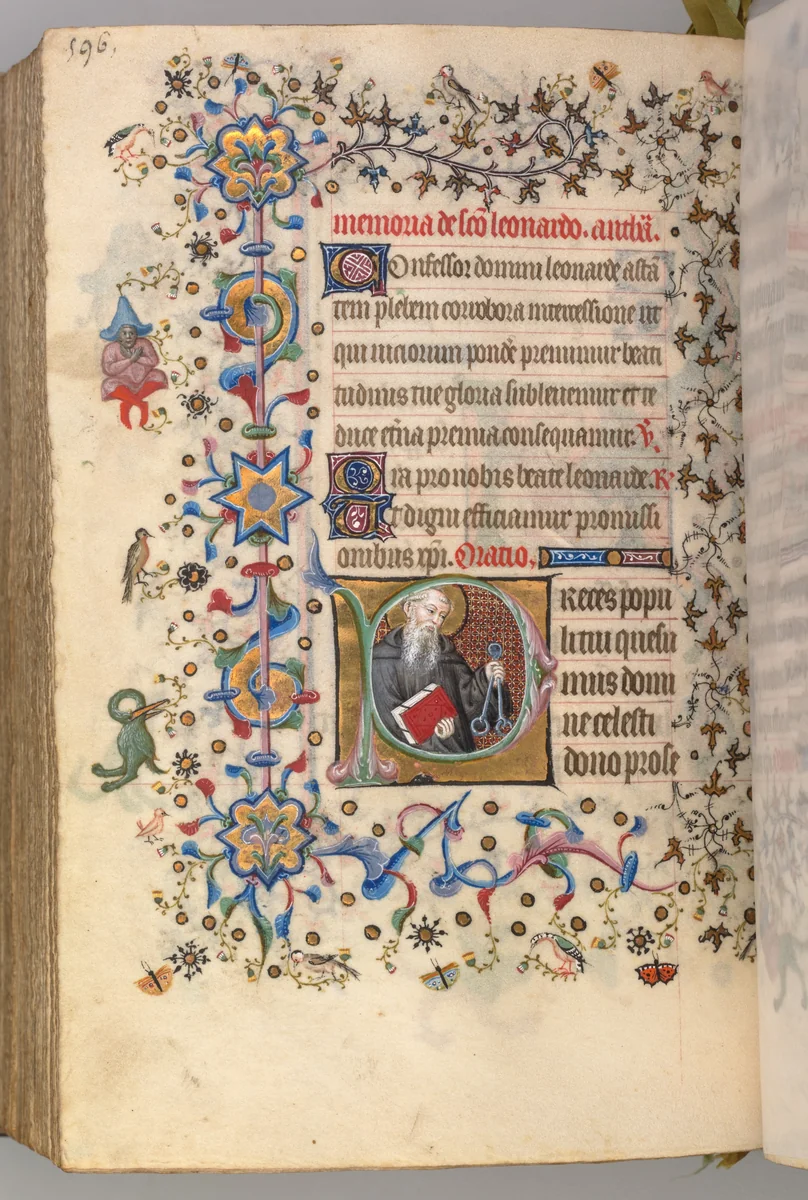 596.
memoria de sc̄o leonardo. anthã.
Confessor domini leonarde astã
tem plebem corrobora intercessione ut
qui uiciorum pondẽ premimur beati
tudinis tue gloria subleuemur et te
duce et̃na premia consequamur. V̷.
Ora pro nobis beate leonarde. R̷
Ut digni efficiamur promissi
onibus xp̃i. Oratio.
Preces popu
li tui quesu
mus domi
ne celesti
dono prose